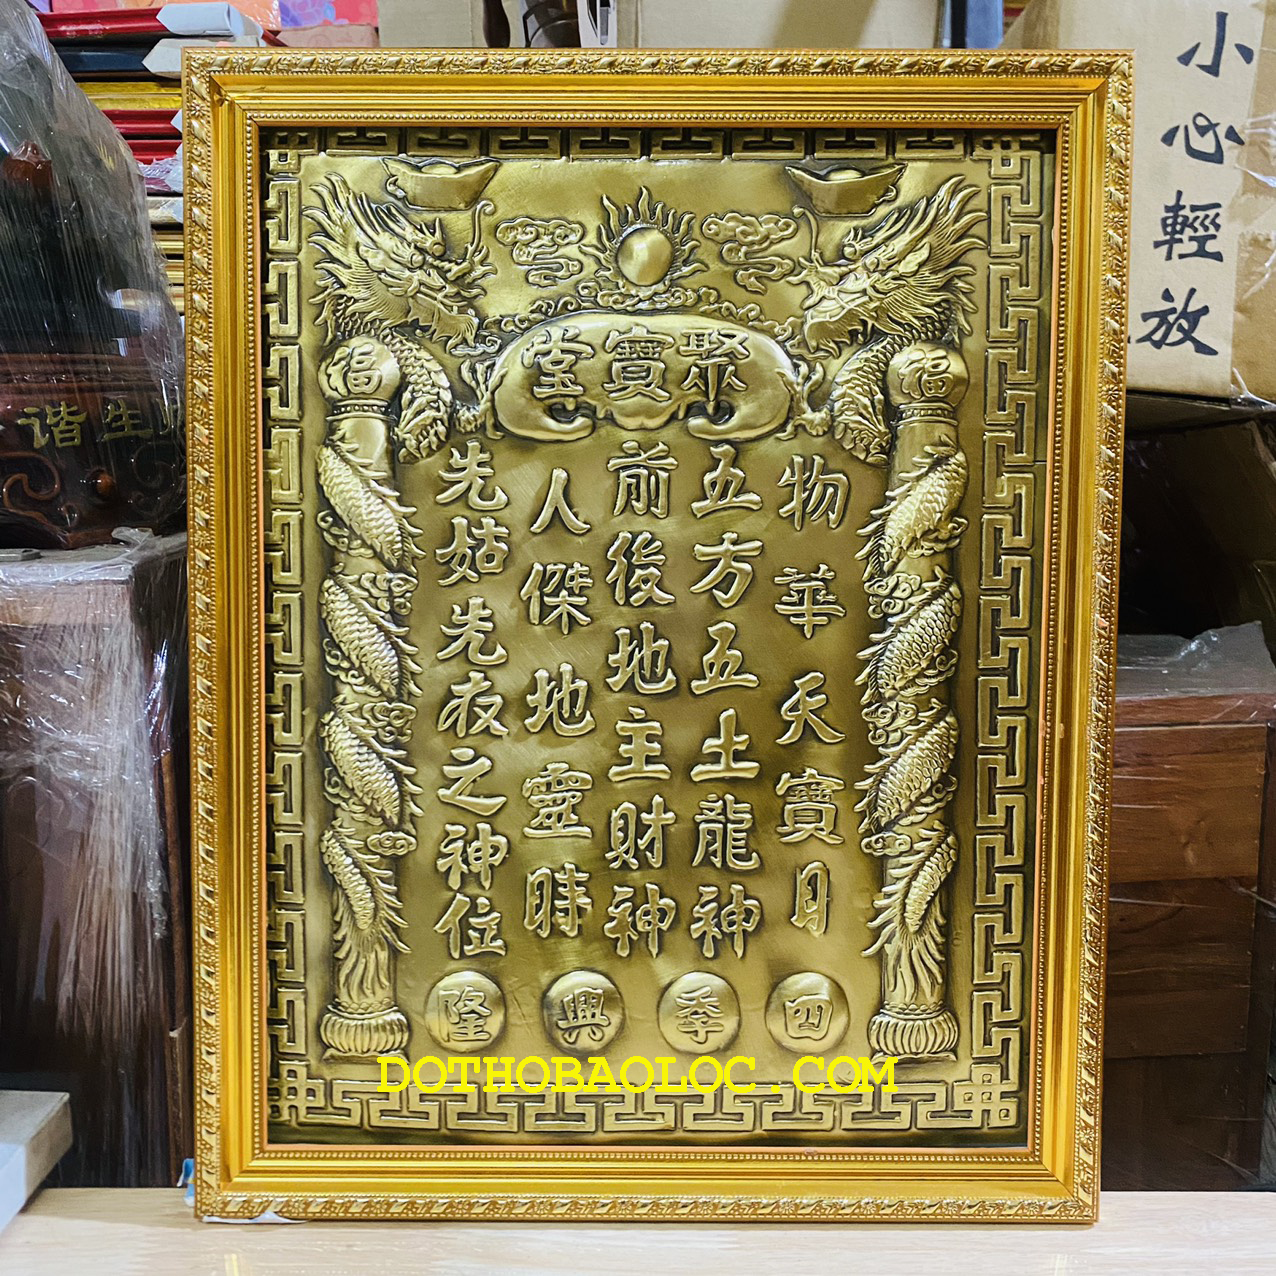 聚寶堂
物華天寶日
五方五土龍神
前後地主財神
人傑地靈時
先姑先夜之神位
四季興隆
DOTHOBAOLOC.COM
小心輕放
谐生